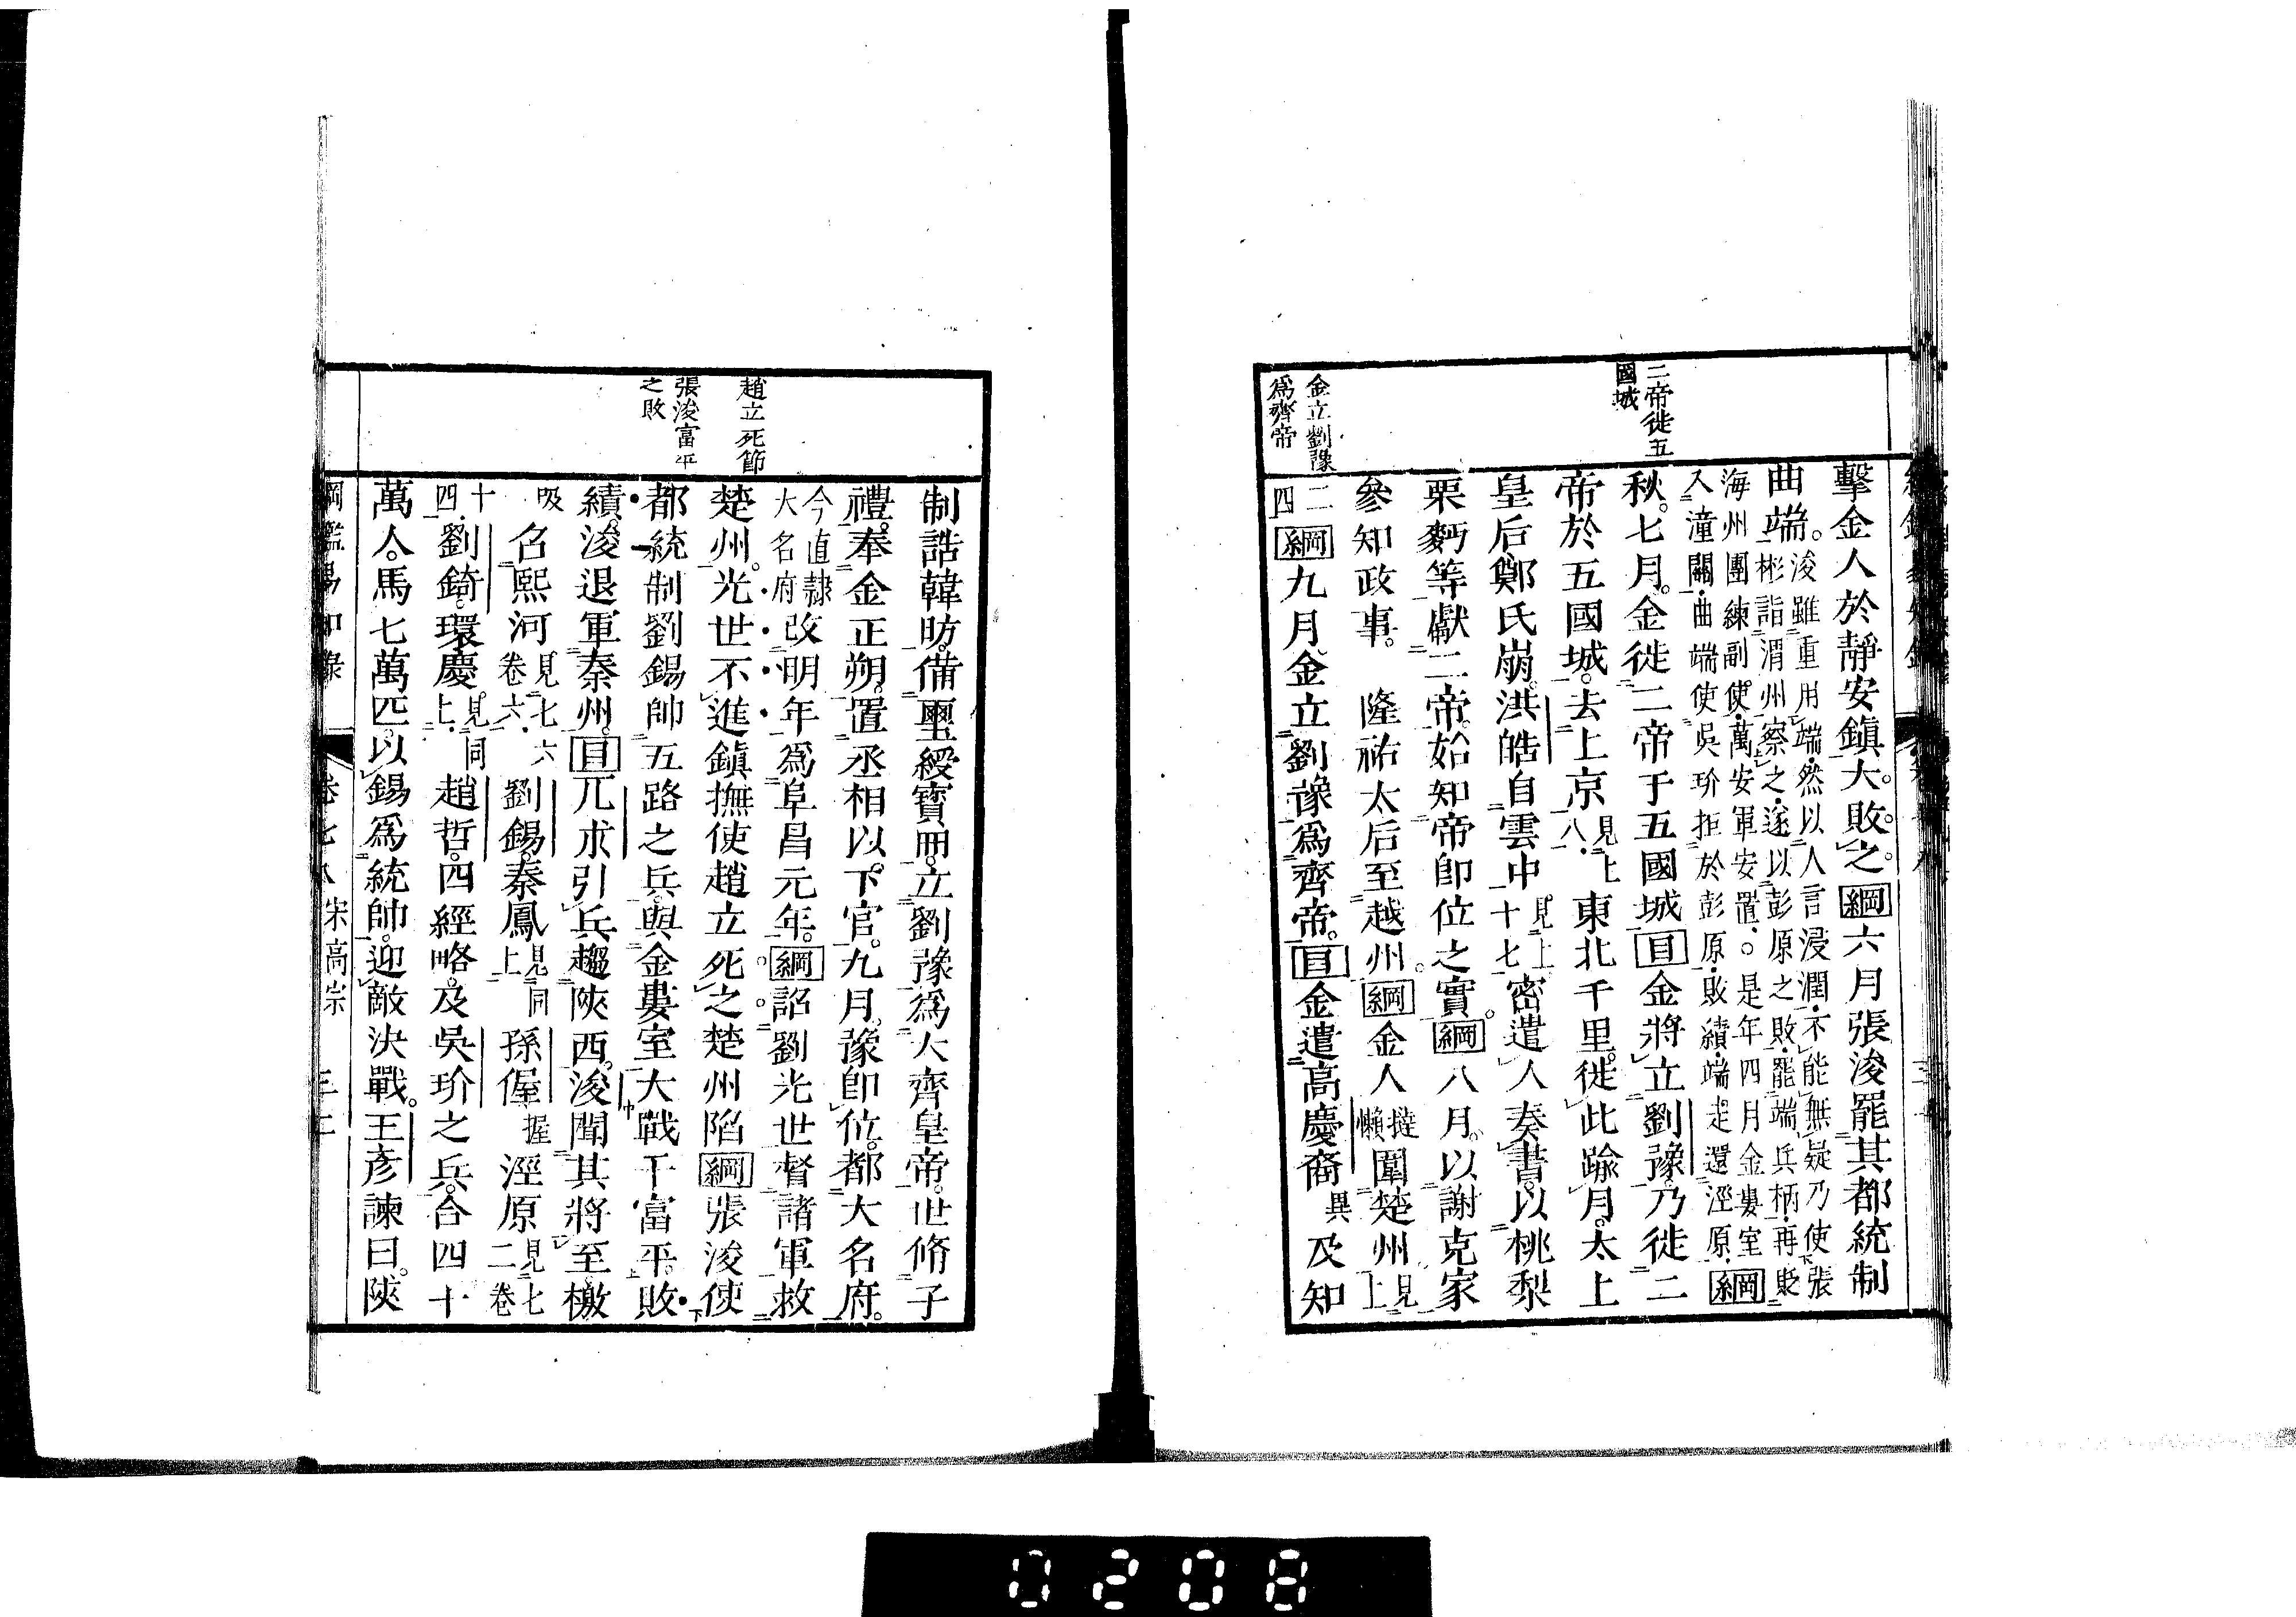 二帝徙五
國城
金立劉豫
爲齊帝
擊金人於靜安鎮大敗之綱六月張浚罷其都統制
曲端浚雖重用端然以人言浸潤不能無疑乃使張
彬詣渭州察之遂以彭原之敗罷端兵柄再貶
海州團練副使萬安軍安置○是年四月金婁室
入潼關曲端使吳玠拒於彭原敗績端走還涇原綱
秋七月金徙二帝于五國城目金將立劉豫乃徙二
帝於五國城去上京見上八東北千里徙此踰月太上
皇后鄭氏崩洪皓自雲中見上十七密遣人奏書以桃梨
栗麪等獻二帝始知帝卽位之實綱八月以謝克家
參知政事 隆祐太后至越州綱金人撻懶圍楚州見上
二四綱九月金立劉豫爲齊帝目金遣高慶裔異及知
趙立死節
張浚富平
之敗
制誥韓昉備璽綬寶冊立劉豫爲大齊皇帝世脩子
禮奉金正朔置丞相以下官九月豫卽位都大名府
今直隸大名府改明年爲阜昌元年綱詔劉光世督諸軍救
楚州光世不進鎮撫使趙立死之楚州陷綱張浚使
都統制劉錫帥五路之兵與金婁室大戰于富平敗
績浚退軍秦州目兀朮引兵趨陝西浚聞其將至檄
召熙河見七六卷六劉錫秦鳳見同上孫偓握涇原見七二卷
十四劉錡環慶見同上趙哲四經略及吳玠之兵合四十
萬人馬七萬匹以錫爲統帥迎敵決戰王彥諫曰陝
綱鑑易知錄 卷七八 宋高宗
0208